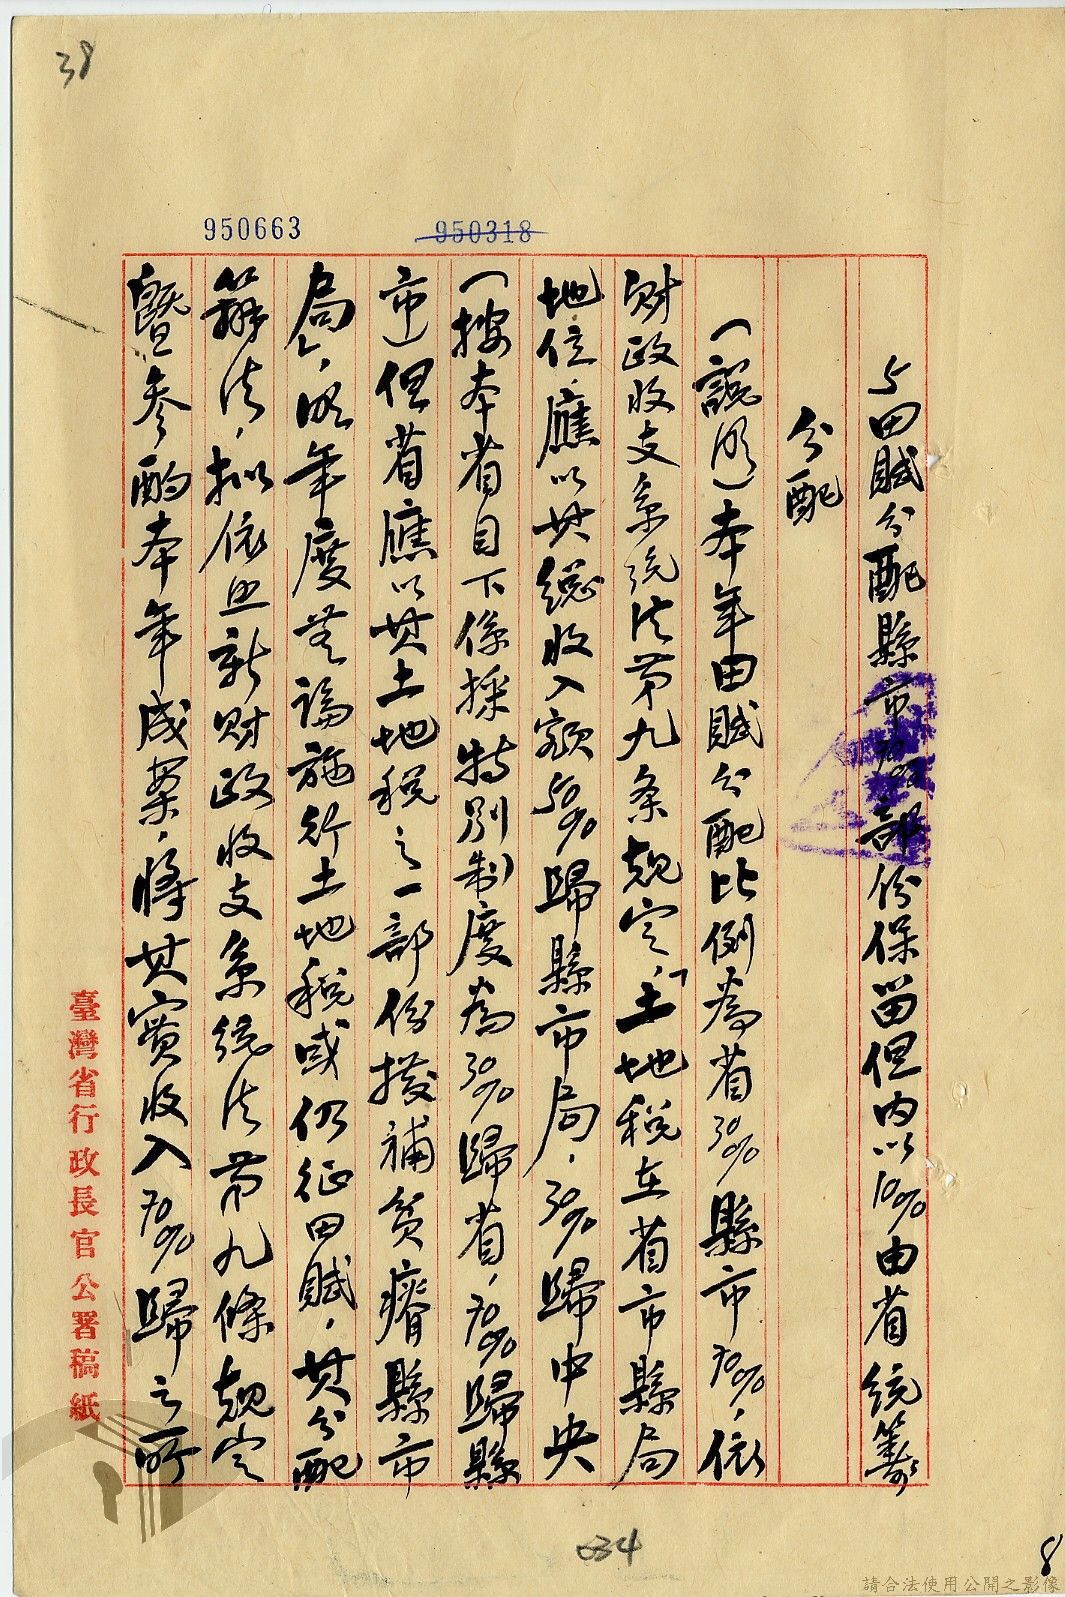 38
950663
950318
5田賦分配縣市70%部份保留但內以10%由省統籌
分配
(說明)本年田賦分配比例為省30%縣市70%,依
財政收支系統法第九条規定,「土地稅在省市縣局
地位應以其總收入額50%歸縣市局,30%歸中央
(按本省目下係採特別制度為30%歸省,70%歸縣
市)但省應以其土地稅之一部份撥補貧瘠縣市
局」,明年度無論施行土地稅或仍征田賦,其分配
辦法,擬依照新財政收支系統法第九條規定
暨參酌本年成案,將其實收入70%歸之所
臺灣省行政長官公署稿紙
034
8
請合法使用公開之影像